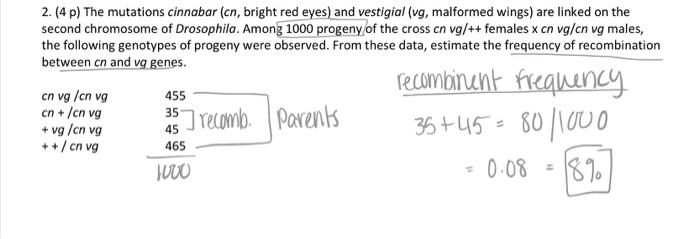 2. (4 p) The mutations cinnabar (cn, bright red eyes) and vestigial (vg, malformed wings) are linked on the
second chromosome of Drosophila. Among 1000 progeny of the cross cn vg/++ females x cn vg/cn vg males,
the following genotypes of progeny were observed. From these data, estimate the frequency of recombination
between cn and vg genes.
recombinent frequency
cn vg /cn vg 455
cn + /cn vg 35
+ vg /cn vg 45
+ + / cn vg 465
recomb. parents
1000
35 + 45 = 80/1000
= 0.08 = 8%